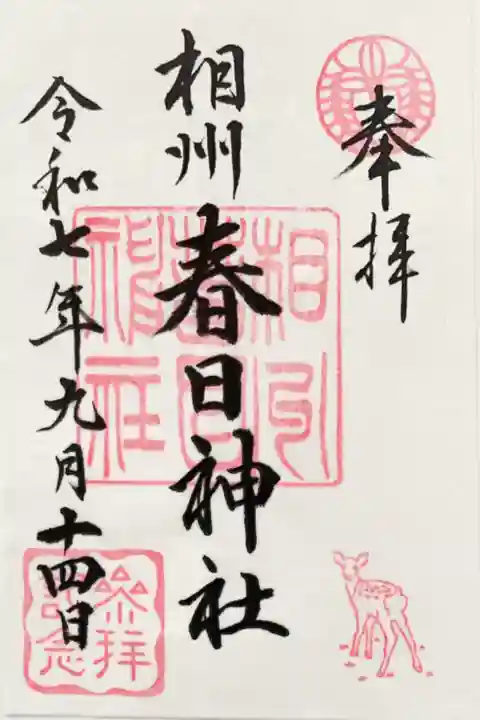 奉拝
相州 春日神社
相州春日神社
令和七年九月十四日
參拝記念